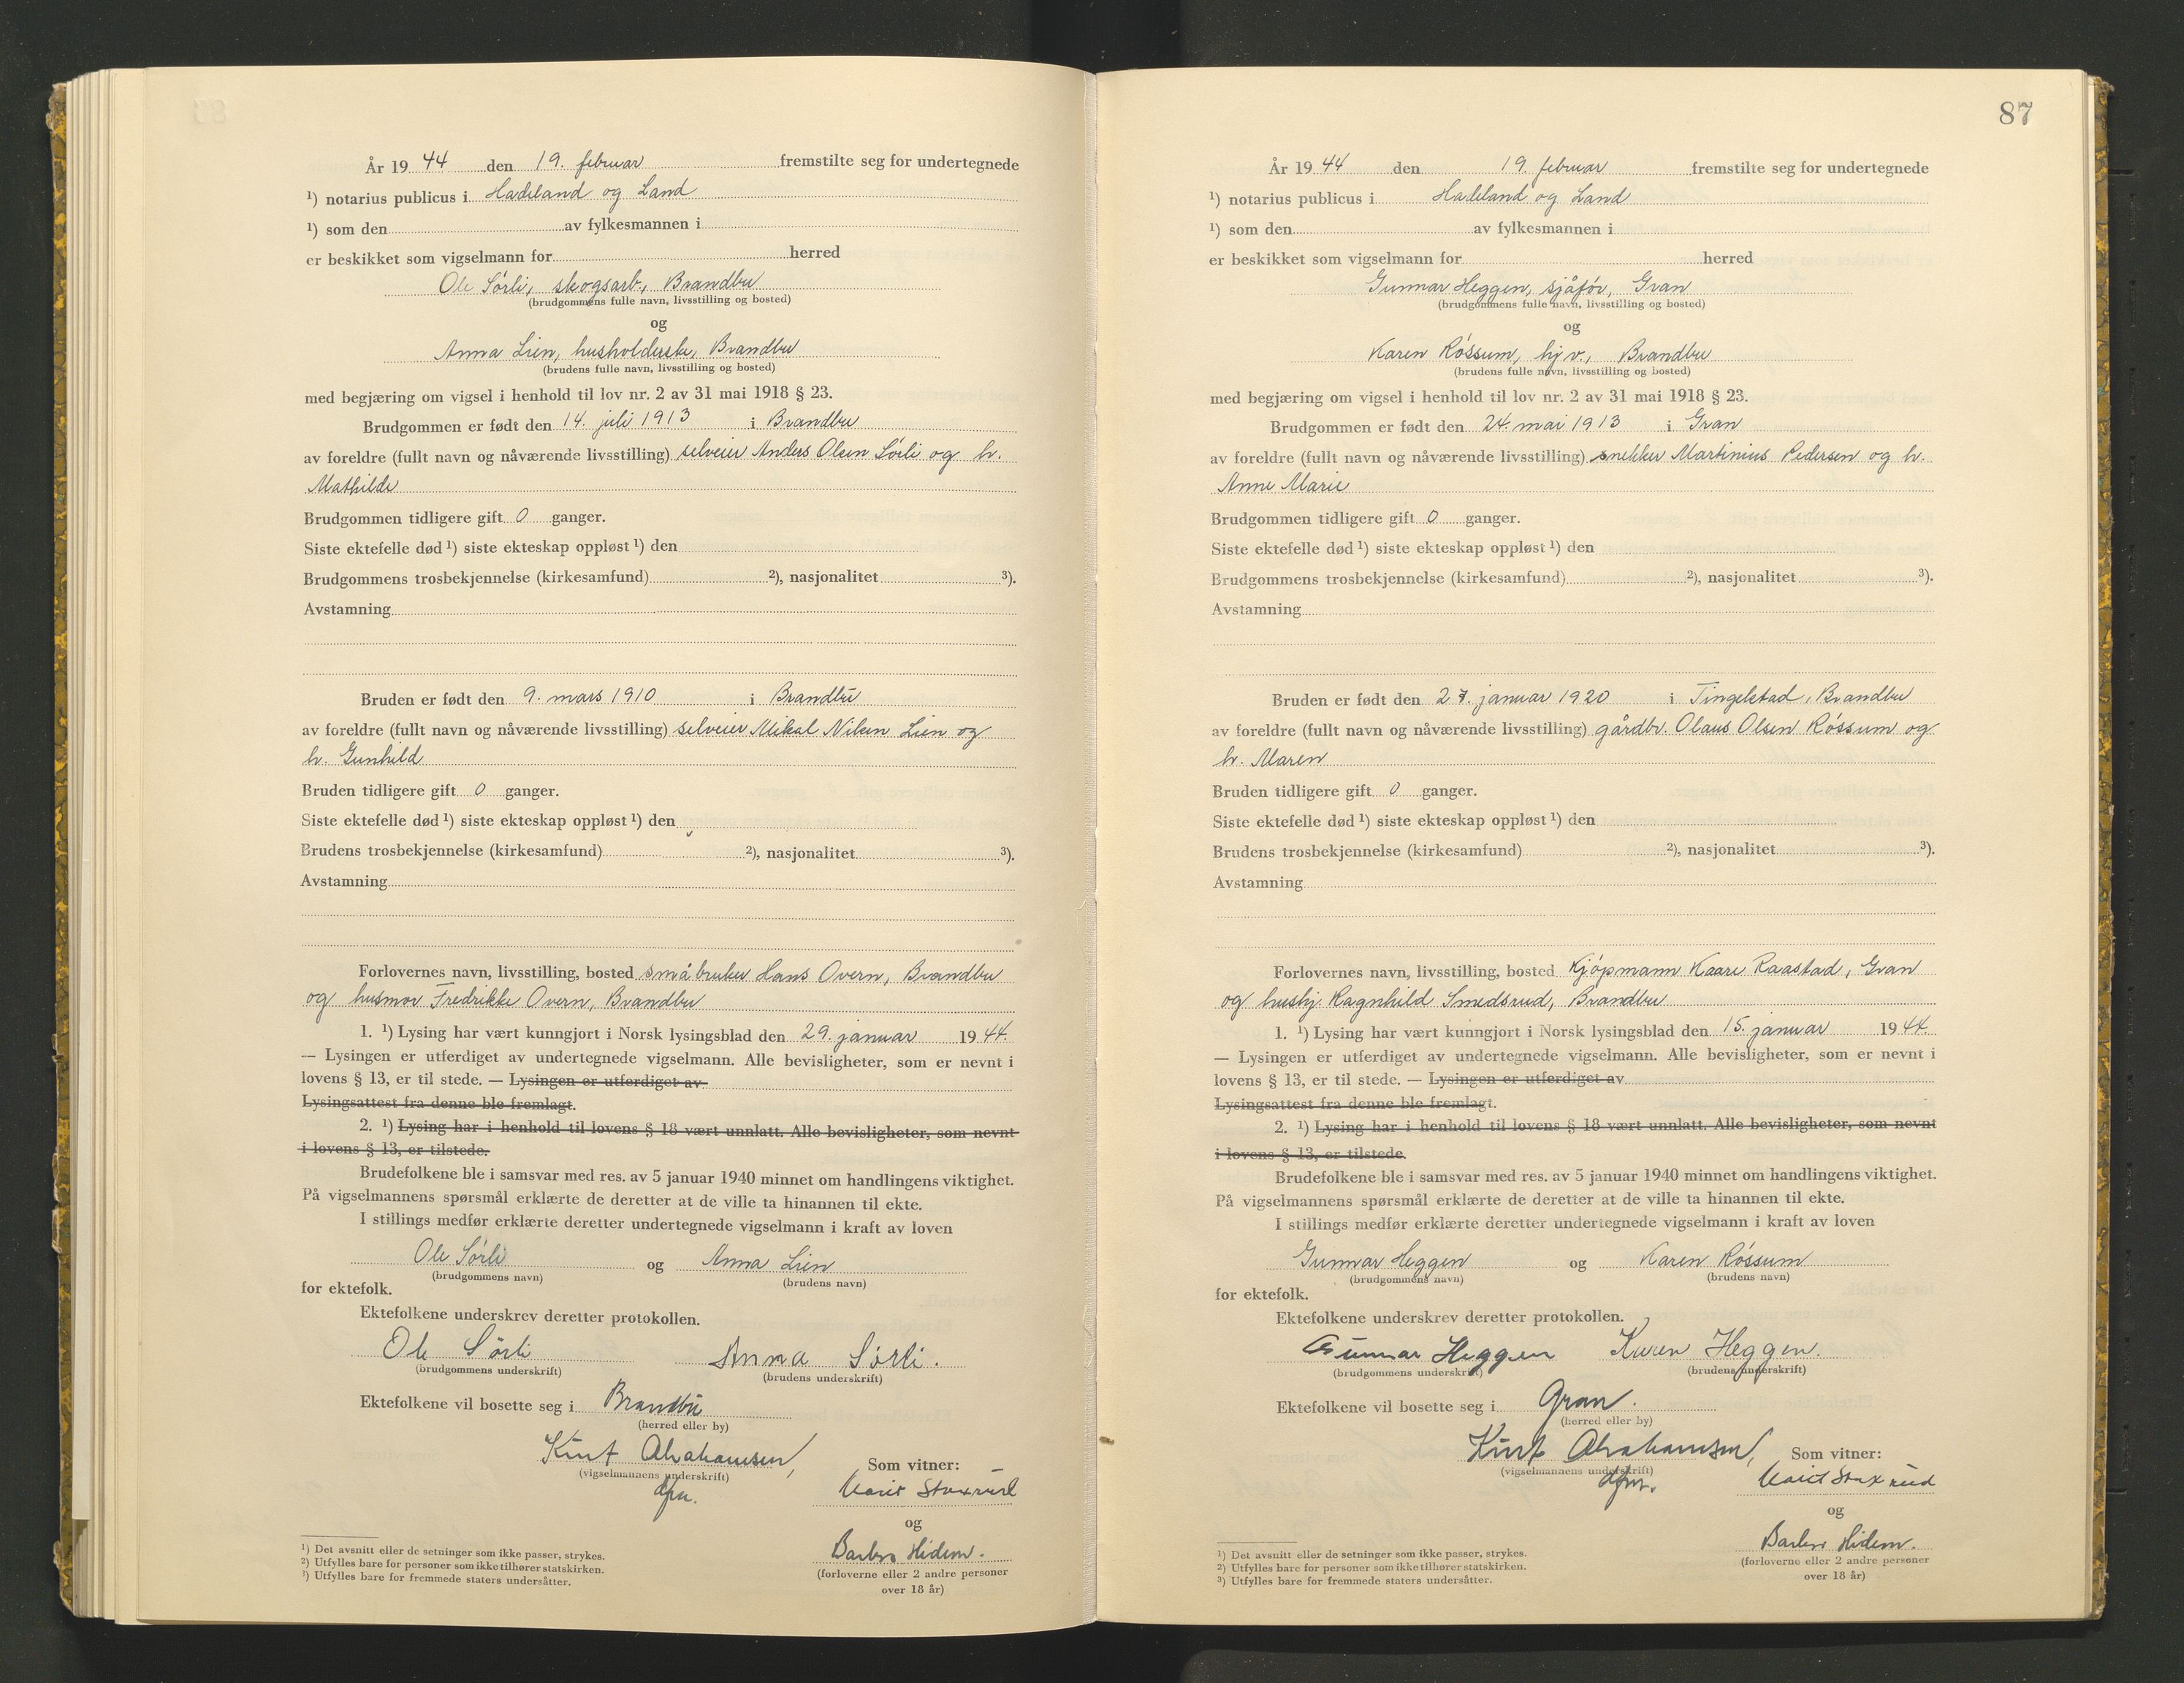 År 19 44 den 19. februar fremstilte seg for undertegnede
¹) notarius publicus i Hadeland og Land
¹) som den av fylkesmannen i
er beskikket som vigselmann for herred
Ole Sørli, skogsarb., Brandbu
(brudgommens fulle navn, livsstilling og bosted)
og
Anna Lien, husholderske, Brandbu
(brudens fulle navn, livsstilling og bosted)
med begjæring om vigsel i henhold til lov nr. 2 av 31 mai 1918 § 23.
Brudgommen er født den 14. juli 1913 i Brandbu
av foreldre (fullt navn og nåværende livsstilling) selveier Anders Olsen Sørli og h.
Mathilde
Brudgommen tidligere gift 0 ganger.
Siste ektefelle død ¹) siste ekteskap oppløst ¹) den
Brudgommens trosbekjennelse (kirkesamfund) ²), nasjonalitet ³).
Avstamning
Bruden er født den 9. mars 1910 i Brandbu
av foreldre (fullt navn og nåværende livsstilling) selveier Mikal Nilsen Lien og
h. Gunhild
Bruden tidligere gift 0 ganger.
Siste ektefelle død ¹) siste ekteskap oppløst ¹) den
Brudens trosbekjennelse (kirkesamfund) ²), nasjonalitet ³).
Avstamning
Forlovernes navn, livsstilling, bosted småbruker Hans Overn, Brandbu
og husmor Fredrikke Overn, Brandbu
1. ¹) Lysing har vært kunngjort i Norsk lysingsblad den 29. januar 19 44.
— Lysingen er utferdiget av undertegnede vigselmann. Alle bevisligheter, som er nevnt i
lovens § 13, er til stede. — Lysingen er utferdiget av
Lysingsattest fra denne ble fremlagt.
2. ¹) Lysing har i henhold til lovens § 18 vært unnlatt. Alle bevisligheter, som nevnt
i lovens § 13, er tilstede.
Brudefolkene ble i samsvar med res. av 5 januar 1940 minnet om handlingens viktighet.
På vigselmannens spørsmål erklærte de deretter at de ville ta hinannen til ekte.
I stillings medfør erklærte deretter undertegnede vigselmann i kraft av loven
Ole Sørli og Anna Lien
(brudgommens navn) (brudens navn)
for ektefolk.
Ektefolkene underskrev deretter protokollen.
Ole Sørli Anna Sørli.
(brudgommens underskrift) (brudens underskrift)
Ektefolkene vil bosette seg i Brandbu
(herred eller by)
Kurt Abrahamsen,
(vigselmannens underskrift) Som vitner:
dfm. Marit Staxrud
og
Barbro Hidem.
(forloverne eller 2 andre personer
over 18 år)
¹) Det avsnitt eller de setninger som ikke passer, strykes.
²) Utfylles bare for personer som ikke tilhører statskirken.
³) Utfylles bare for fremmede staters undersåtter.
87
År 19 44 den 19. februar fremstilte seg for undertegnede
¹) notarius publicus i Hadeland og Land
¹) som den av fylkesmannen i
er beskikket som vigselmann for herred
Gunnar Heggen, sjåfør, Gran
(brudgommens fulle navn, livsstilling og bosted)
og
Karen Røssum, hj.v., Brandbu
(brudens fulle navn, livsstilling og bosted)
med begjæring om vigsel i henhold til lov nr. 2 av 31 mai 1918 § 23.
Brudgommen er født den 24. mai 1913 i Gran
av foreldre (fullt navn og nåværende livsstilling) snekker Martinius Pedersen og h.
Anne Marie
Brudgommen tidligere gift 0 ganger.
Siste ektefelle død ¹) siste ekteskap oppløst ¹) den
Brudgommens trosbekjennelse (kirkesamfund) ²), nasjonalitet ³).
Avstamning
Bruden er født den 27. januar 1920 i Tingelstad, Brandbu
av foreldre (fullt navn og nåværende livsstilling) gårdbr. Olaus Olsen Røssum og
h. Maren
Bruden tidligere gift 0 ganger.
Siste ektefelle død ¹) siste ekteskap oppløst ¹) den
Brudens trosbekjennelse (kirkesamfund) ²), nasjonalitet ³).
Avstamning
Forlovernes navn, livsstilling, bosted Kjøpmann Kaare Raastad, Gran
og hushj. Ragnhild Smedsrud, Brandbu
1. ¹) Lysing har vært kunngjort i Norsk lysingsblad den 15. januar 19 44.
— Lysingen er utferdiget av undertegnede vigselmann. Alle bevisligheter, som er nevnt i
lovens § 13, er til stede. — Lysingen er utferdiget av
Lysingsattest fra denne ble fremlagt.
2. ¹) Lysing har i henhold til lovens § 18 vært unnlatt. Alle bevisligheter, som nevnt
i lovens § 13, er tilstede.
Brudefolkene ble i samsvar med res. av 5 januar 1940 minnet om handlingens viktighet.
På vigselmannens spørsmål erklærte de deretter at de ville ta hinannen til ekte.
I stillings medfør erklærte deretter undertegnede vigselmann i kraft av loven
Gunnar Heggen og Karen Røssum
(brudgommens navn) (brudens navn)
for ektefolk.
Ektefolkene underskrev deretter protokollen.
Gunnar Heggen Karen Heggen.
(brudgommens underskrift) (brudens underskrift)
Ektefolkene vil bosette seg i Gran.
(herred eller by)
Kurt Abrahamsen,
(vigselmannens underskrift) Som vitner:
dfm. Marit Staxrud
og
Barbro Hidem.
(forloverne eller 2 andre personer
over 18 år)
¹) Det avsnitt eller de setninger som ikke passer, strykes.
²) Utfylles bare for personer som ikke tilhører statskirken.
³) Utfylles bare for fremmede staters undersåtter.